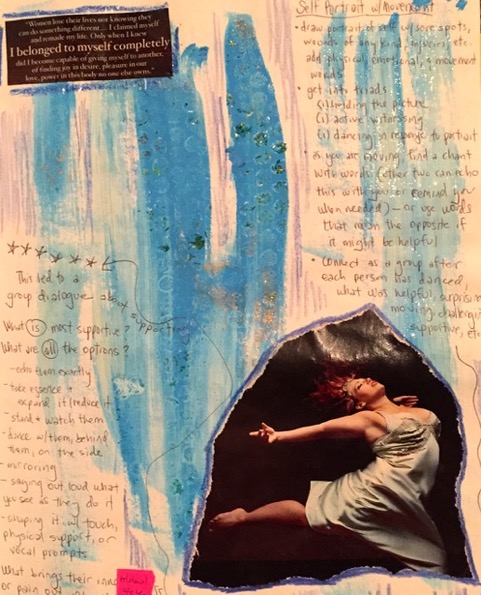 "Women lose their lives not knowing they
can do something different... I claimed myself
and remade my life. Only when I knew
I belonged to myself completely
did I become capable of giving myself to another,
of finding joy in desire, pleasure in our
love, power in this body no one else owns."
Self Portrait w/Movement
• draw portrait of self w/ sore spots,
wounds of any kind, injuries, etc.
add physical, emotional, & movement
words
• get into triads
(1) holding the picture
(1) active witnessing
(1) dancing in response to portrait
• as you are moving, find a chant
with words (other two can echo
this with you or remind you
when needed) – or use words
that mean the opposite if
it might be helpful
• Connect as a group after
each person has danced,
what was helpful, surprising
moving, challenging
supportive, etc.
This led to a
group dialogue about support
What is most supportive?
What are all the options?
- echo them exactly
- take essence &
expand it/reduce it
- stand & watch them
- dance w/them, behind
them, on the side
- mirroring
- saying out loud what
you see as they do it
- shaping it w/ touch,
physical support, or
vocal prompts
What brings their inner
or pain out